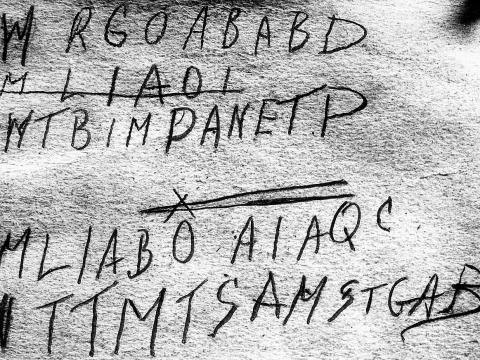 W RGOABABD
MLIAOI
WTBIMPANETP
MLIABOAIAQC
ITTMTSAMSTGAB